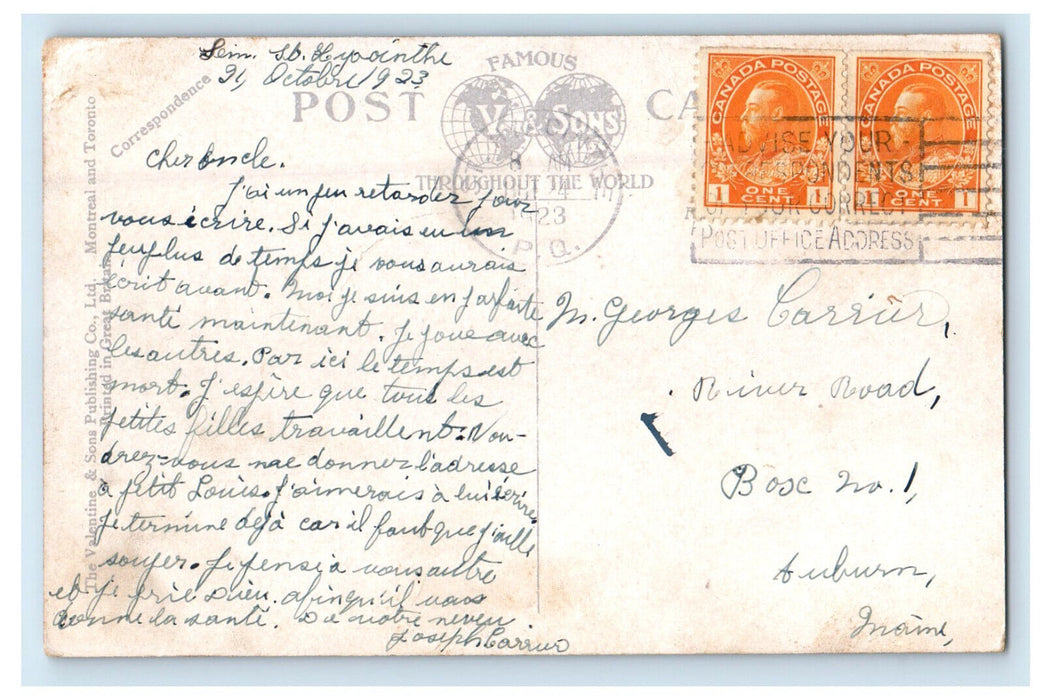 Sem. St. Hyacinthe
21, Octobre 1923
Correspondence
POST CA
FAMOUS
V. & SONS
THROUGHOUT THE WORLD
CANADA POSTAGE
1 ONE CENT 1
CANADA POSTAGE
1 ONE CENT 1
8 AM
1923
P.Q.
ADVISE YOUR
SPONDENTS
OF YOUR CORRECT
POST OFFICE ADDRESS
The Valentine & Sons Publishing Co., Ltd., Montreal and Toronto
Printed in Great Britain
Cher Oncle.
J'ai un peu retarder pour
vous écrire. Si j'avais eu un
peu plus de temps je vous aurais
écrit avant. Moi je suis en parfaite
santé maintenant. Je joue avec
les autres. Par ici le temps est
mort. J'espère que tous les
petites filles travaillent. Vou-
drez-vous me donner l'adresse
à petit Louis. J'aimerais à lui écrire.
Je termine déjà car il faut que j'aille
souper. Je pensi à vous autre
et je prie Dieu afin qu'il vous
donne la santé. De votre neveu
Joseph Carrier
M. Georges Carrier,
River Road,
Box No. 1,
Auburn,
Maine,